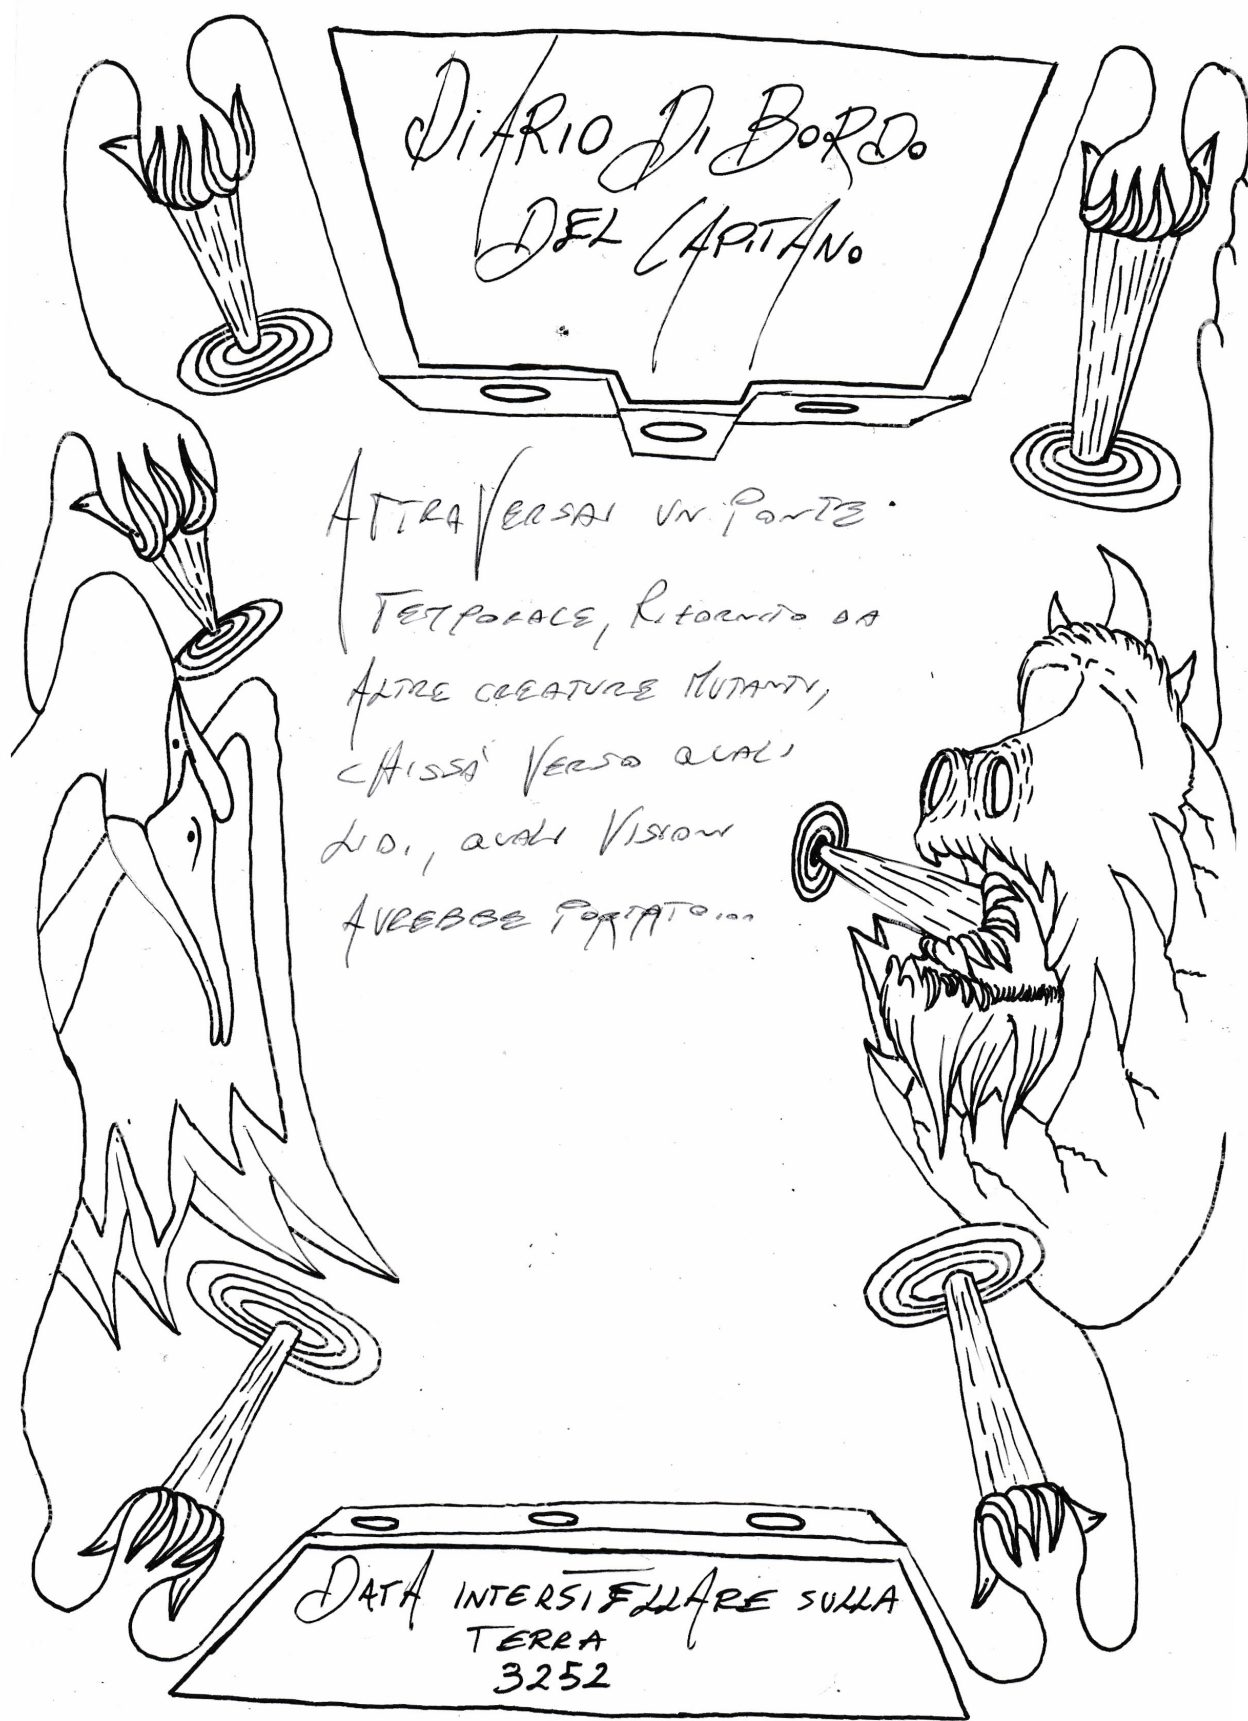 DIARIO DI BORDO
DEL CAPITANO
ATTRAVERSAI UN PONTE
TEMPORALE, RIFORNITO DA
ALTRE CREATURE MUTANTI,
CHISSÀ VERSO QUALI
LIDI, QUALI VISIONI
AVREBBE PORTATO...
DATA INTERSTELLARE SULLA
TERRA
3252